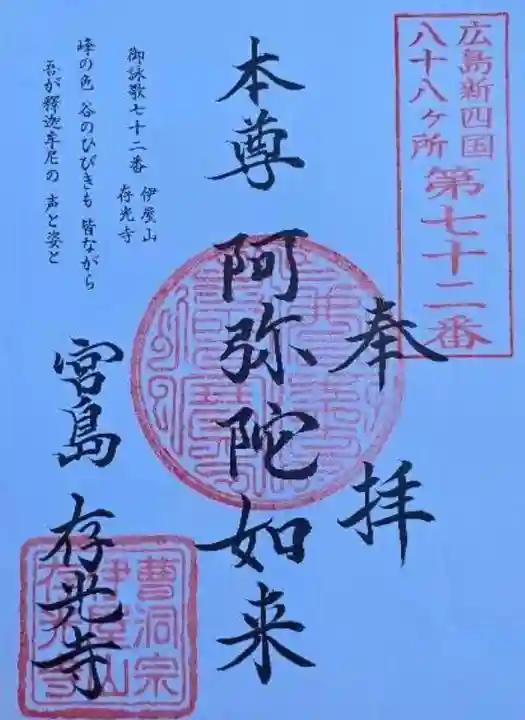 広島新四国
八十八ヶ所
第七十二番
奉拝
本尊 阿弥陀如来
御詠歌七十二番 伊屋山
存光寺
峰の色 谷のひびきも 皆ながら
吾が釋迦牟尼の 声と姿と
宮島 存光寺
曹洞宗
伊屋山
存光寺